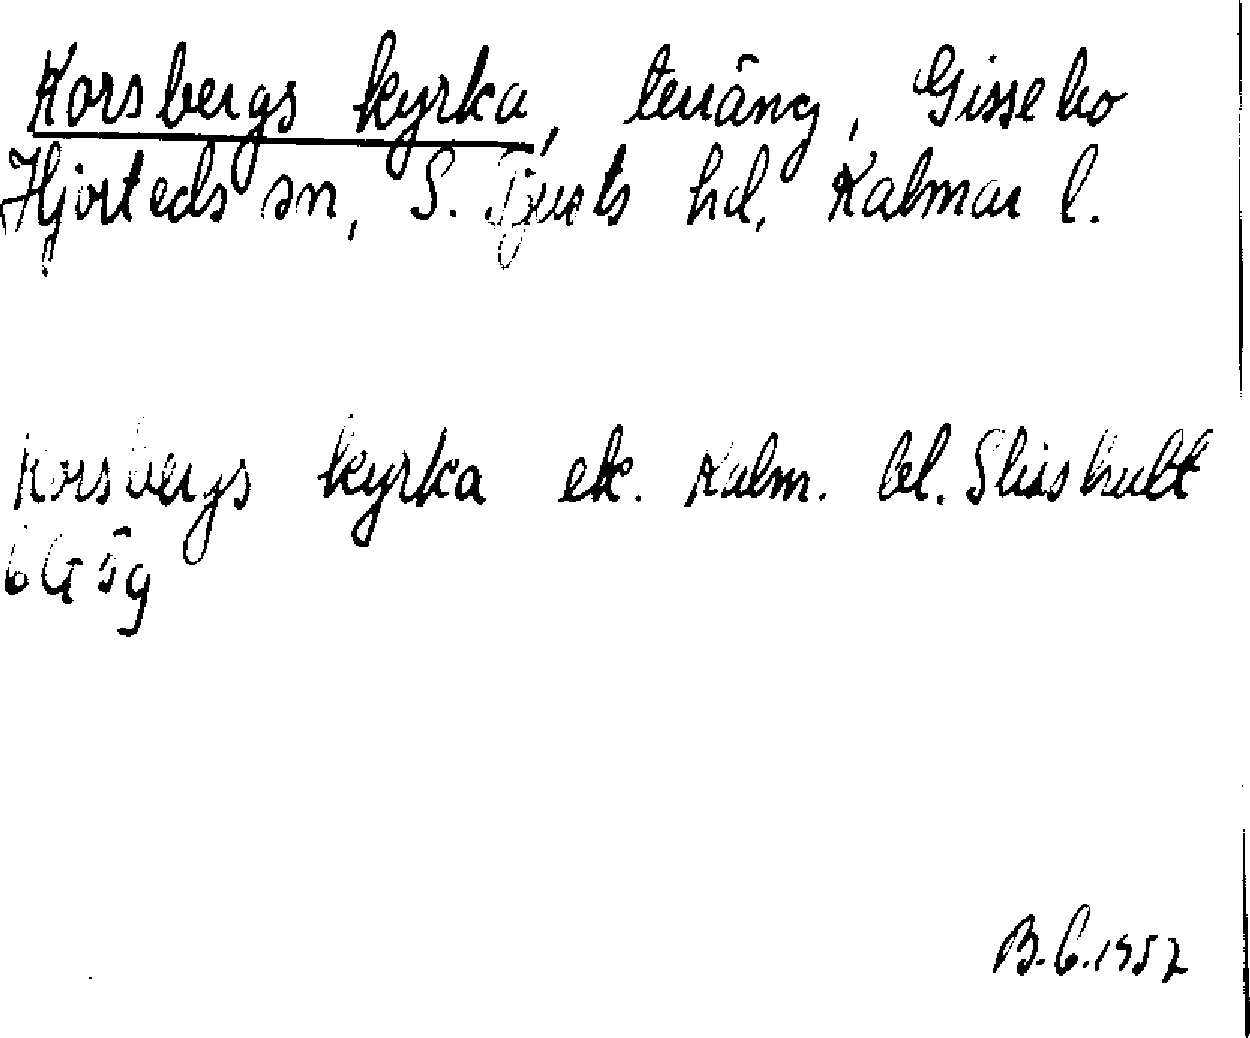 Korsbergs kyrka, terräng, Gissebo
Hjorteds sn, S. Tjusts hd, Kalmar l.
Korsbergs kyrka ek. Kalm. bl. Slisshult
6G5g
B.G.1957